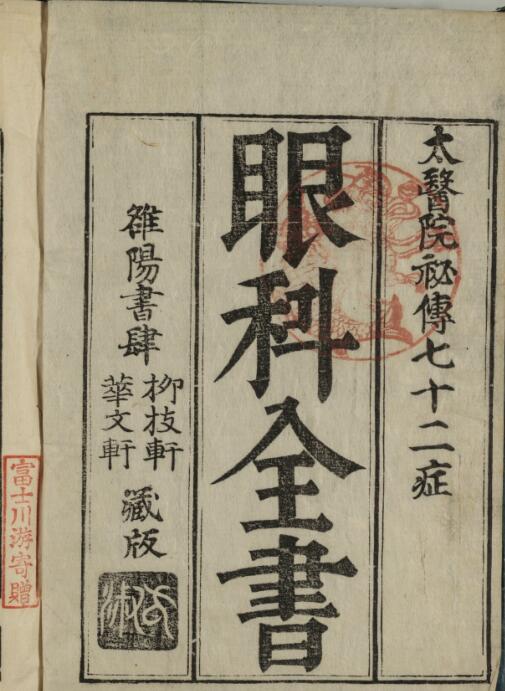 太醫院祕傳七十二症
眼科全書
雒陽書肆
柳枝軒
華文軒
藏版
富士川游寄贈